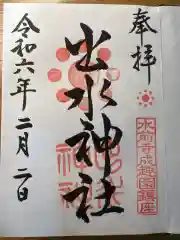 奉拝
水前寺成趣園鎮座
出水神社
令和六年二月二日